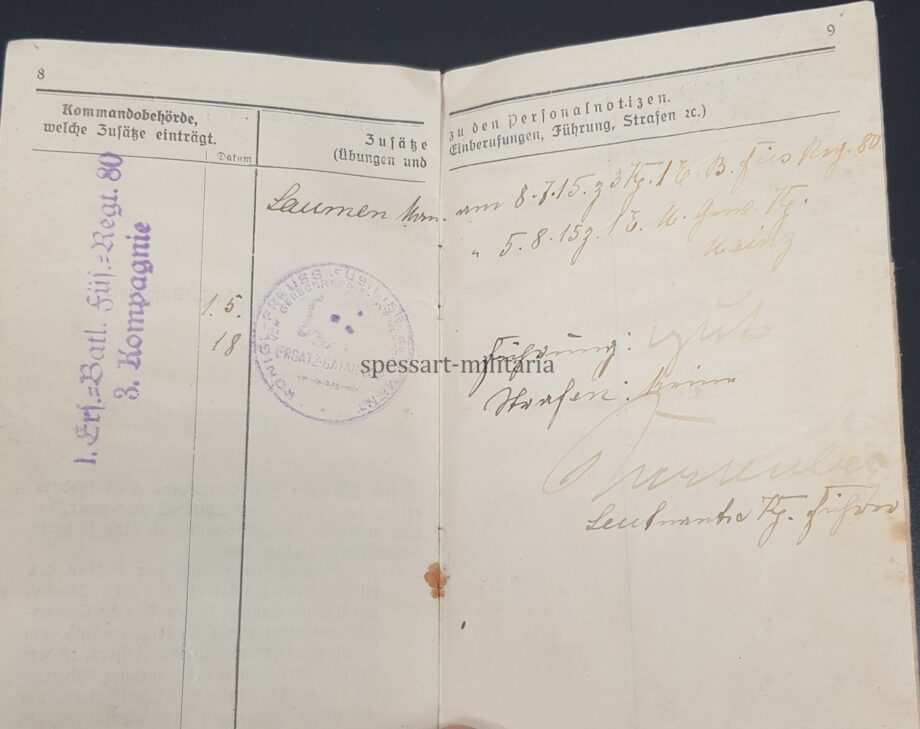 8
Kommandobehörde,
welche Zusätze einträgt.
Datum
Zusätze
(Übungen und
1. Ers.=Batl. Füs.=Regt. 80
3. Kompagnie
1. 5.
18
KÖNIGL. PREUSS. FÜSILIER REGIMENT
VON GERSDORFF
ERSATZ-BATAILLON
9
zu den Personalnotizen.
Einberufungen, Führung, Strafen ꝛc.)
am 8.7.15. z 3 Kp. 1 E. B. Füs Reg. 80
" 5.8.15 z. 1 E. M. Gew. Kp.
Mainz
Führung: gut
Strafen: keine
Leutnant u Kp. Führer
spessart-militaria